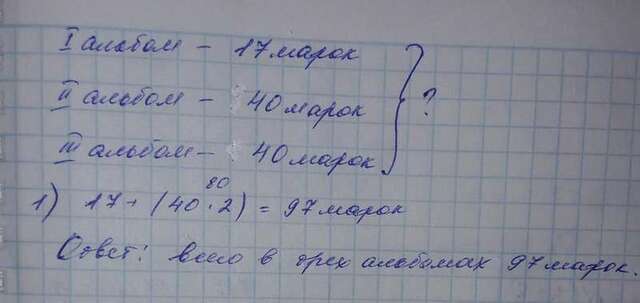 I альбом - 17 марок
II альбом - 40 марок } ?
III альбом - 40 марок
80
1) 17 + (40 · 2) = 97 марок
Ответ: всего в трех альбомах 97 марок.